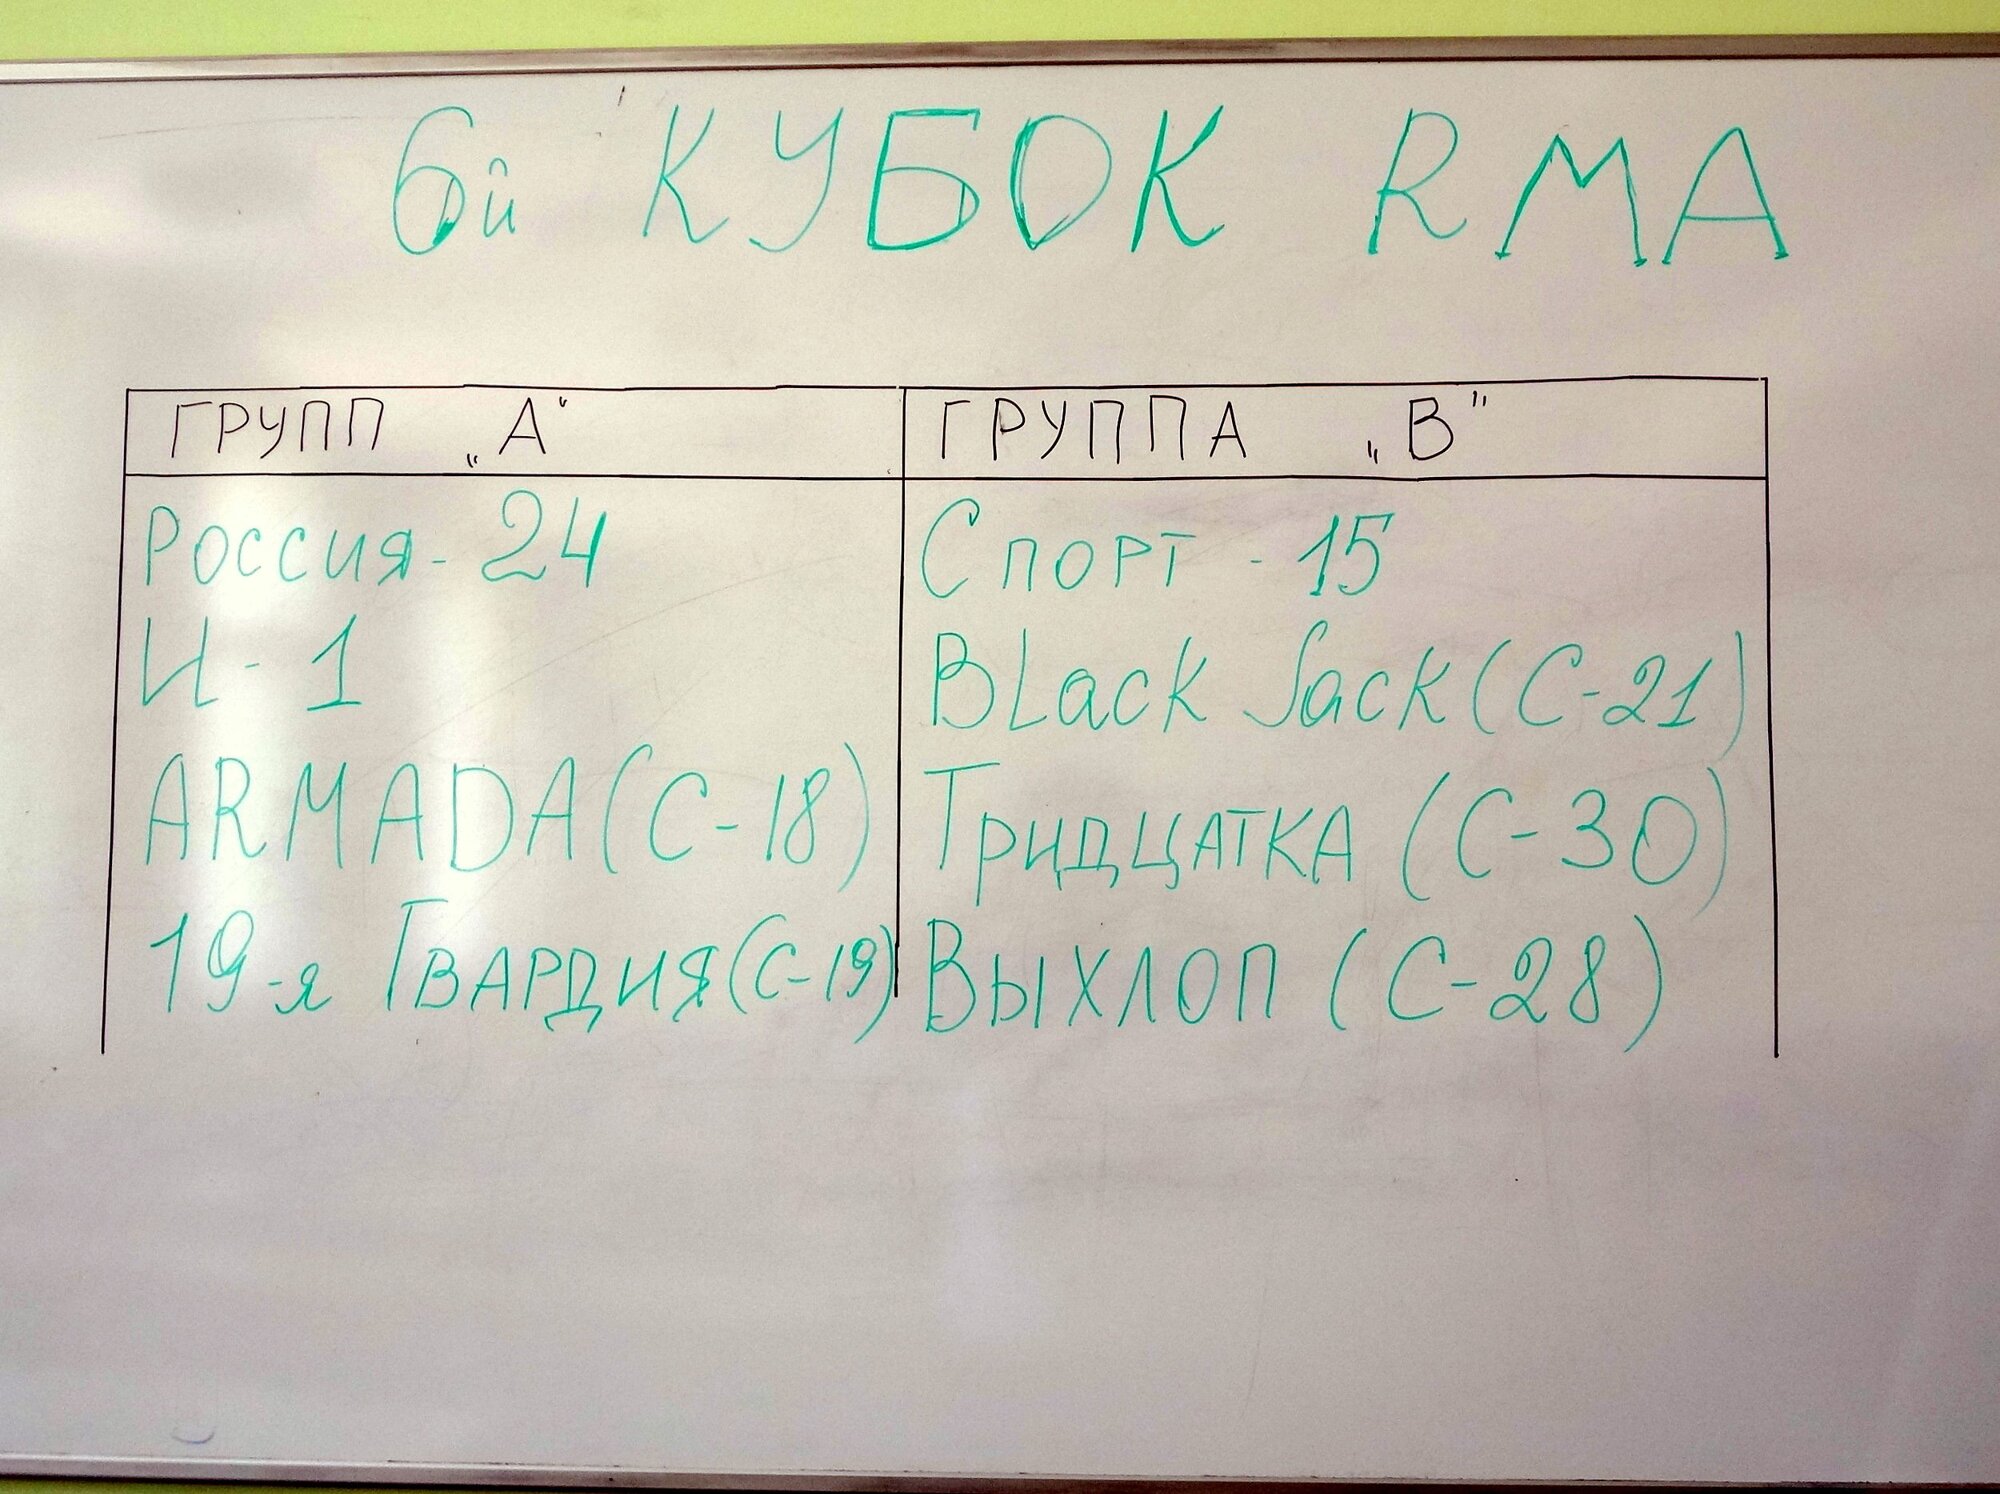 6й КУБОК RMA
ГРУПП „А“
ГРУППА „В”
Россия - 24
И - 1
ARMADA (С - 18)
19-я Гвардия (С-19)
Спорт - 15
BLack Jack (С-21)
Тридцатка (С-30)
Выхлоп (С-28)